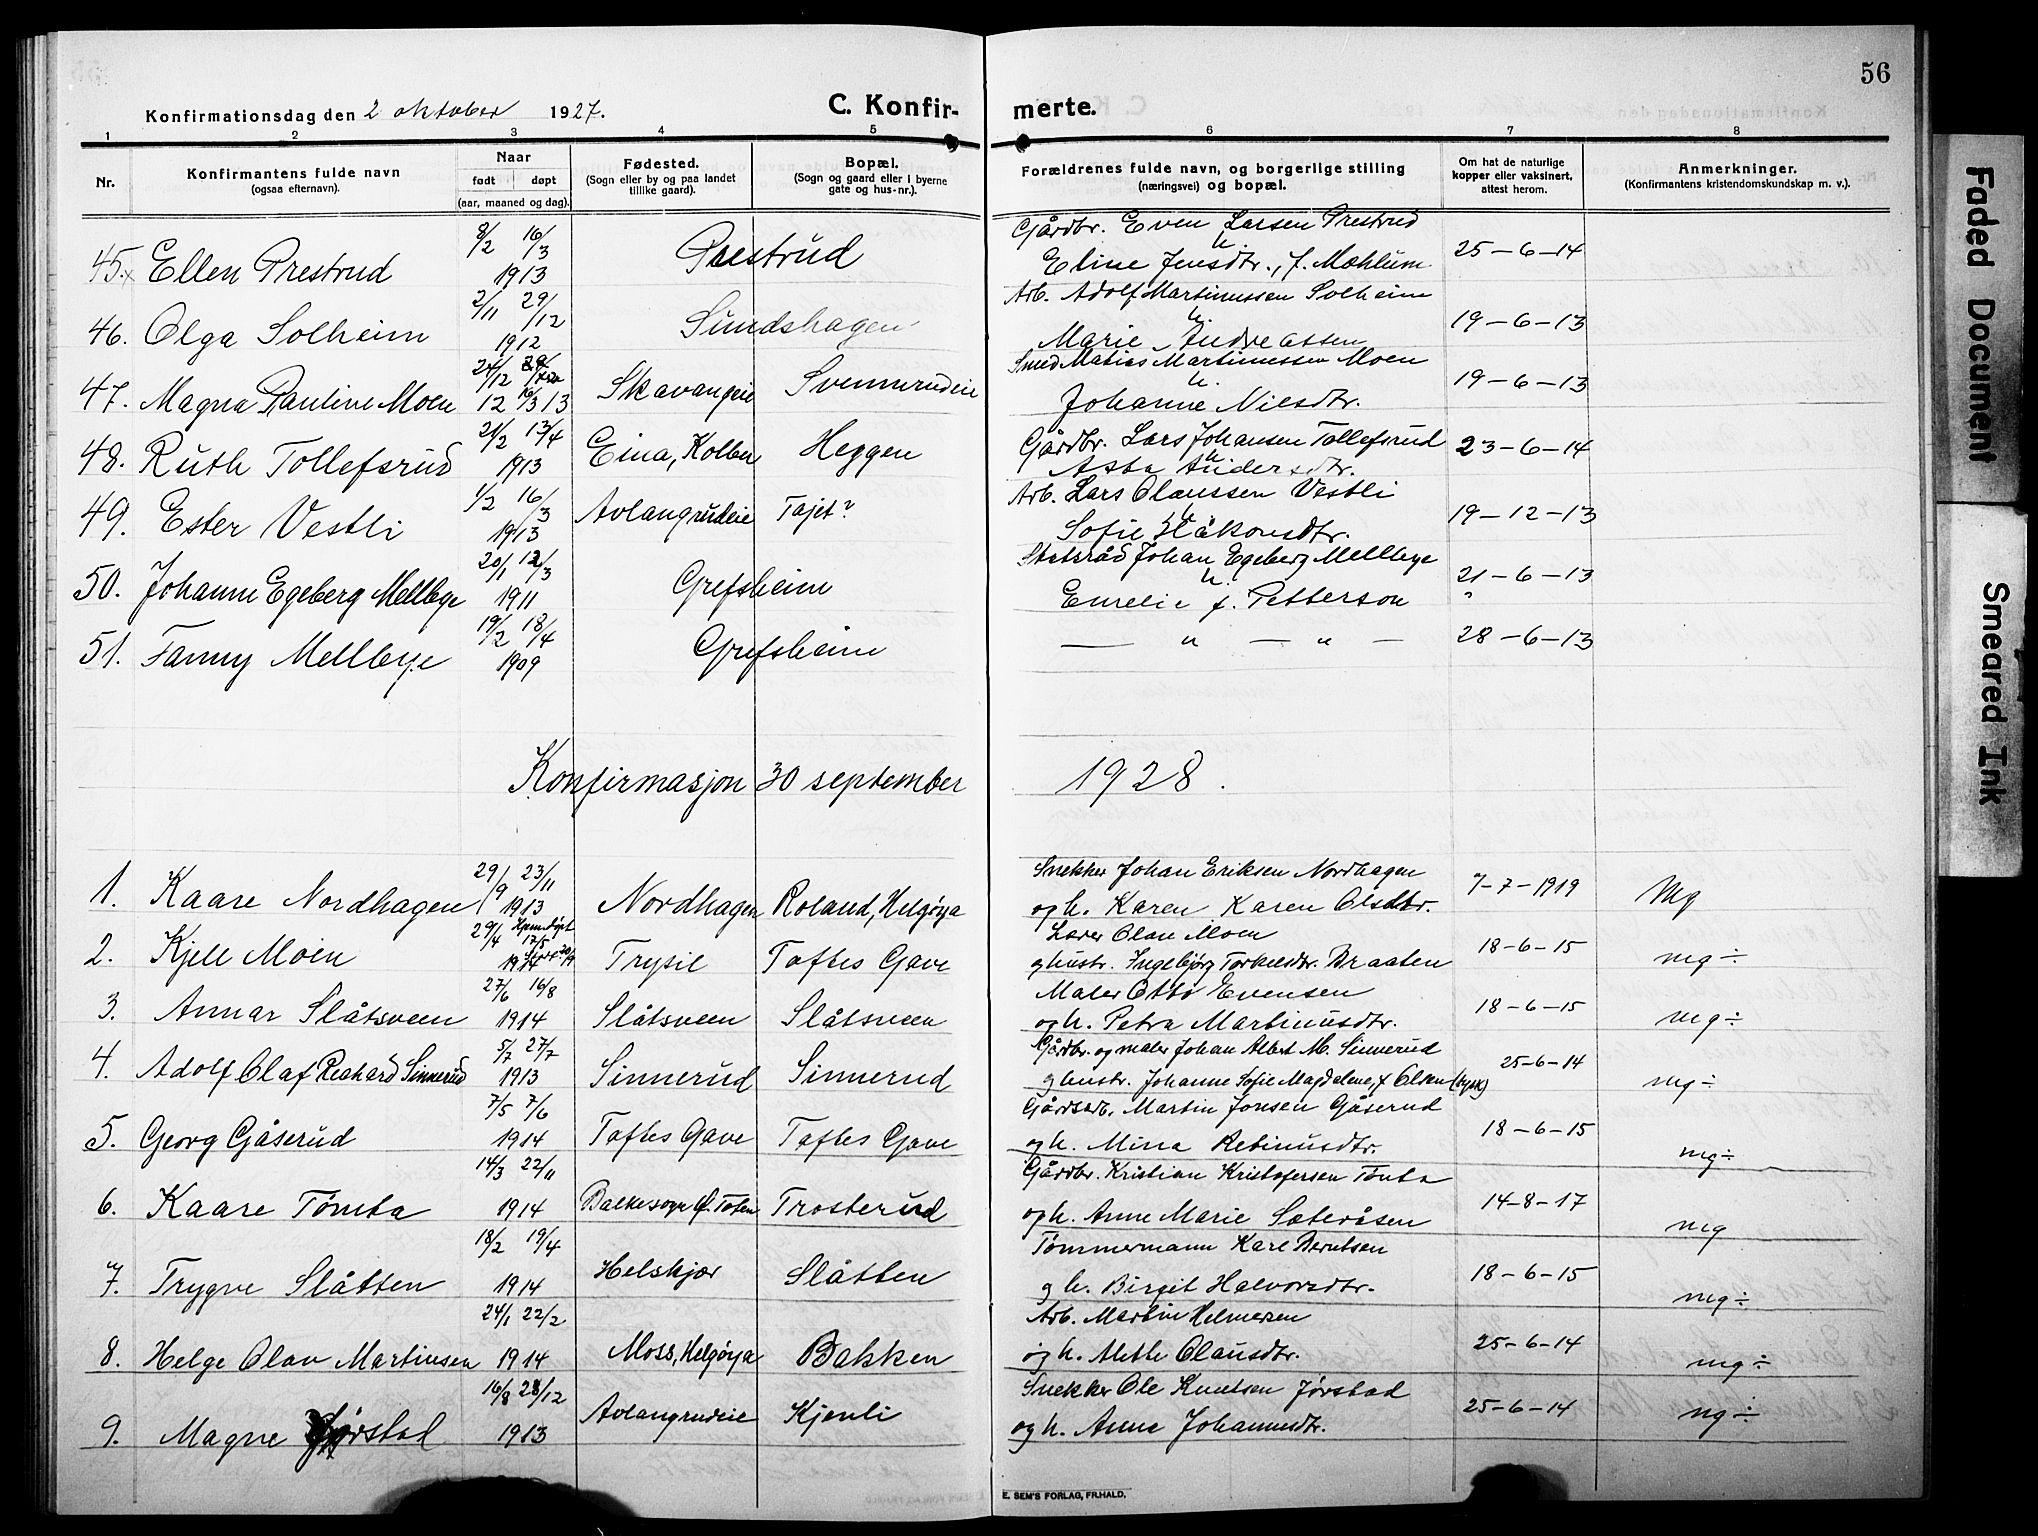 56
Konfirmationsdag den 2 oktober 1927.
C. Konfir- merte.
1 2 3 4 5 6 7 8
Nr.
Konfirmantens fulde navn
(ogsaa efternavn).
Naar
født døpt
(aar, maaned og dag).
Fødested.
(Sogn eller by og paa landet
tillike gaard).
Bopæl.
(Sogn og gaard eller i byerne
gate og hus-nr.).
Forældrenes fulde navn, og borgerlige stilling
(næringsvei) og bopæl.
Om hat de naturlige
kopper eller vaksinert,
attest herom.
Anmerkninger.
(Konfirmantens kristendomskundskap m. v.).
8/2 16/3 Gårdbr. Even Larsen Prestrud
45.x Ellen Prestrud 1913 Prestrud Eline Jensdtr., f. Mæhlum 25-6-14
2/11 29/12 Arb. Adolf Martinussen Solheim
46. Olga Solheim 1912 Sundshagen Marie Andreassen 19-6-13
24/12 Smed Matias Martinussen Moen
47. Magna Pauline Moen 12 16/3 13 Skavangeie Svennerudeie Johanne Nilsdtr. 19-6-13
21/2 13/4 Gårdbr. Lars Johansen Tollefsrud
48. Ruth Tollefsrud 1913 Eina, Kolbu Heggen Asta Andersdtr. 23-6-14
1/2 16/3 Arb. Lars Olaussen Vestli
49. Ester Vestli 1913 Avlangrudeie Tajet? Sofie Håkonsdtr. 19-12-13
20/1 12/3 Statsråd Johan Egeberg Mellbye
50. Johann Egeberg Mellbye 1911 Grefsheim Emelie f. Petterson 21-6-13
19/2 18/4
51. Fanny Mellbye 1909 Grefsheim — " — " — 28-6-13
Konfirmasjon 30 september 1928.
29/9 23/11 Snekker Johan Eriksen Nordhagen
1. Kaare Nordhagen 1913 Nordhagen Roland, Helgøya og h. Karen Karen Olsdtr. 7-7-1919 Mg
29/4 Hjemdøpt 17/5 Lærer Olav Moen
2. Kjell Moen 1914 Trysil Toftes Gave og hustr. Ingebjørg Torkelsdtr. Braaten 18-6-15 mg÷
27/6 16/8 Maler Otto Evensen
3. Annar Slåtsveen 1914 Slåtsveen Slåtsveen og h. Petra Martinusdtr. 18-6-15 mg÷
5/7 27/7 Gårdbr. og maler Johan Albert M. Sinnerud
4. Adolf Olaf Reahard Sinnerud 1913 Sinnerud Sinnerud og hustr. Johanne Sofie Magdalene, f Olsen (tysk) 25-6-14 mg÷
7/5 7/6 Gårdsarb. Martin Jonsen Gåserud
5. Georg Gåserud 1914 Toftes Gave Toftes Gave og h. Mina Rebinusdtr. 18-6-15 mg÷
14/3 22/11 Gårdbr. Kristian Kristofersen Tömta
6. Kaare Tömta 1914 Balke sogn Ø. Toten Trosterud og h. Anne Marie Sæteråsen 14-8-17 mg
18/2 19/4 Tømmermann Karl Berntsen
7. Trygve Slåtten 1914 Helskjær Slåtten og h. Birgit Halvorsdtr. 18-6-15 mg÷
24/1 22/2 Arb. Martin Helmersen
8. Helge Olav Martinsen 1914 Moss, Helgøya Bakken og h. Mette Olausdtr. 25-6-14 mg÷
16/8 28/12 Snekker Ole Knutsen Jørstad
9. Magne Jørstad 1913 Avlangrudeie Kjenli og h. Anne Johannesdtr. 25-6-14 ng÷
E. SEM'S FORLAG, FR.HALD.
Faded Document
Smeared Ink